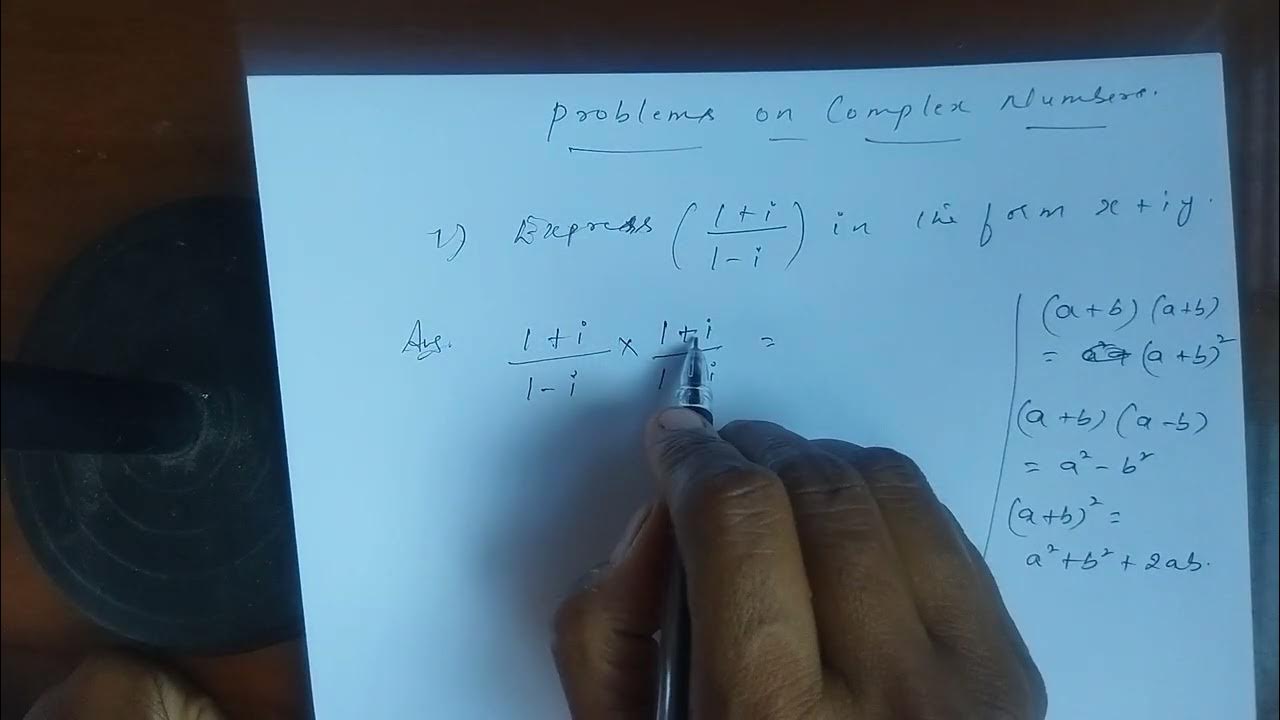 Problems on Complex Numbers.
1) Express (1 + i / 1 - i) in the form x + iy.
Ans. 1 + i / 1 - i × 1 + i / 1 i =
(a + b) (a + b)
= (a + b)²
(a + b) (a - b)
= a² - b²
(a + b)² =
a² + b² + 2ab.